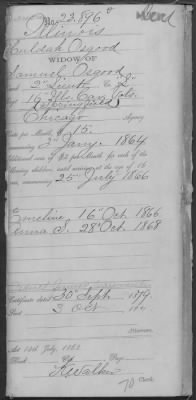 No. 22,896
Dead
Illinois
Huldah Osgood
WIDOW OF
Samuel Osgood
2" Lieut. Co. L
16 Ills. Cav. Vols.
(Springfield)
Chicago Agency
Rate per Month, $ 15.
2 Jany. 1864
Additional sum of $2 per Month for each of the
following children, until arriving at the age of 16
years, commencing 25" July 1866
Emeline, 16" Oct. 1866
S. 28" Oct. 1868
Certificate dated 30 Sept. 1879.
Sent 3 Oct
Act 14th July, 1862.
Book Page
Walker
Clerk.
70